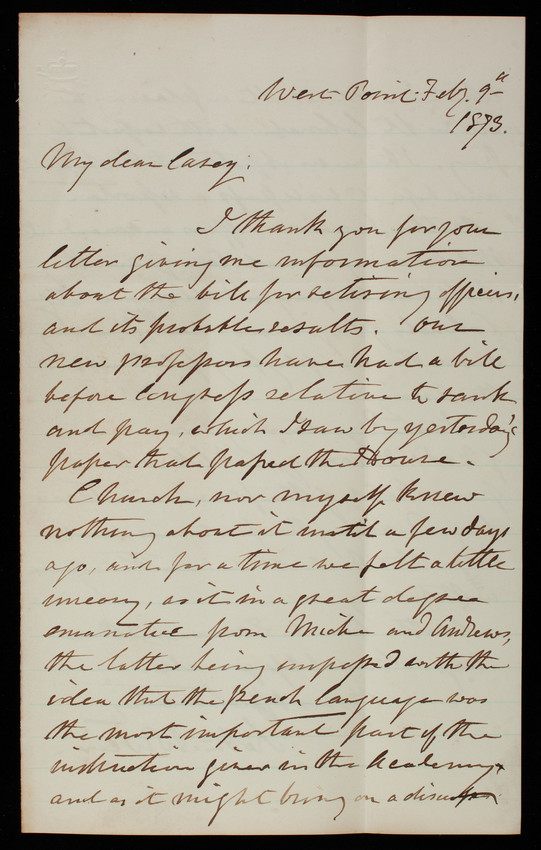 West Point Feby. 9th
1873.
My dear Casey:
I thank you for your
letter giving me information
about the bill for retiring officers,
and its probable results. Our
new professors have had a bill
before Congress relative to rank
and pay, which I saw by yesterday's
paper had passed the House.
Church, nor myself knew
nothing about it until a few days
ago, and for a time we felt a little
uneasy, as it in a great degree
emanated from Michie and Andrews,
the latter being impressed with the
idea that the french language was
the most important part of the
instruction given in the Academy,
and as it might bring on a